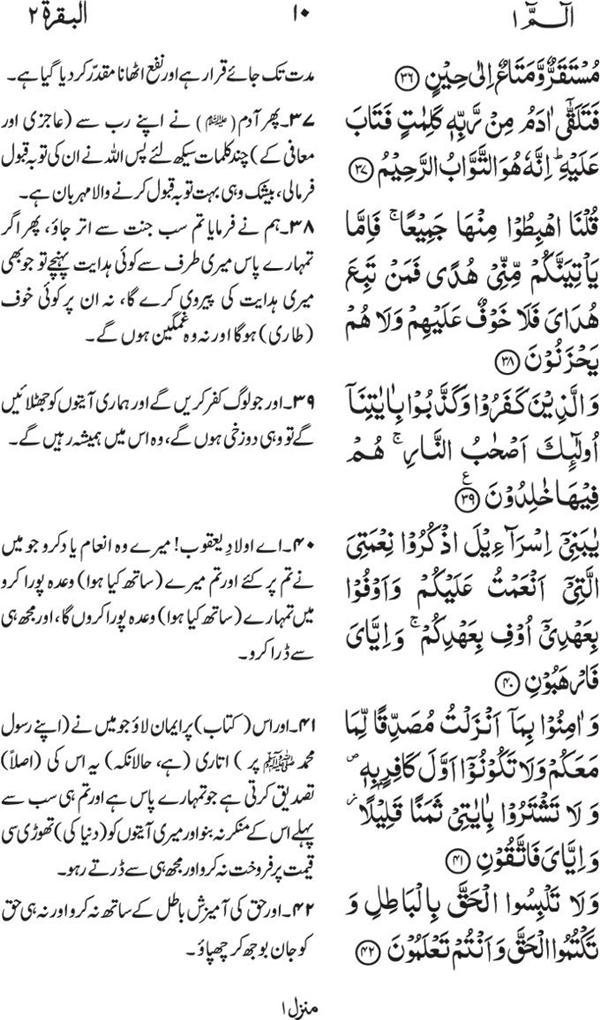 الٓـمّٓ ١
١٠
البقرة ٢
مُسْتَقَرٌّ وَّمَتَاعٌ اِلٰى حِيْنٍ ﴿٣٦﴾
فَتَلَقّٰٓى اٰدَمُ مِنْ رَّبِّهٖ كَلِمٰتٍ فَتَابَ
عَلَيْهِ ؕ اِنَّهٗ هُوَ التَّوَّابُ الرَّحِيْمُ ﴿٣٧﴾
قُلْنَا اهْبِطُوْا مِنْهَا جَمِيْعًا ۚ فَاِمَّا
يَاْتِيَنَّكُمْ مِّنِّيْ هُدًى فَمَنْ تَبِعَ
هُدَايَ فَلَا خَوْفٌ عَلَيْهِمْ وَلَا هُمْ
يَحْزَنُوْنَ ﴿٣٨﴾
وَالَّذِيْنَ كَفَرُوْا وَكَذَّبُوْا بِاٰيٰتِنَآ
اُولٰٓئِكَ اَصْحٰبُ النَّارِ ۚ هُمْ
فِيْهَا خٰلِدُوْنَ ﴿٣٩﴾ ع
يٰبَنِيْٓ اِسْرَآءِيْلَ اذْكُرُوْا نِعْمَتِيَ
الَّتِيْٓ اَنْعَمْتُ عَلَيْكُمْ وَاَوْفُوْا
بِعَهْدِيْٓ اُوْفِ بِعَهْدِكُمْ ۚ وَاِيَّايَ
فَارْهَبُوْنِ ﴿٤٠﴾
وَاٰمِنُوْا بِمَآ اَنْزَلْتُ مُصَدِّقًا لِّمَا
مَعَكُمْ وَلَا تَكُوْنُوْٓا اَوَّلَ كَافِرٍۭ بِهٖ ۪
وَلَا تَشْتَرُوْا بِاٰيٰتِيْ ثَمَنًا قَلِيْلًا ؗ
وَّاِيَّايَ فَاتَّقُوْنِ ﴿٤١﴾
وَلَا تَلْبِسُوا الْحَقَّ بِالْبَاطِلِ وَ
تَكْتُمُوا الْحَقَّ وَاَنْتُمْ تَعْلَمُوْنَ ﴿٤٢﴾
مدت تک جائے قرار ہے اور نفع اٹھانا مقدّر کر دیا گیا ہے۔
۳۷۔ پھر آدم (علیہ السلام) نے اپنے رب سے (عاجزی اور
معافی کے) چند کلمات سیکھ لئے پس اللہ نے ان کی توبہ قبول
فرما لی، بیشک وہی بہت توبہ قبول کرنے والا مہربان ہے۔
۳۸۔ ہم نے فرمایا تم سب جنت سے اتر جاؤ، پھر اگر
تمہارے پاس میری طرف سے کوئی ہدایت پہنچے تو جو بھی
میری ہدایت کی پیروی کرے گا، نہ ان پر کوئی خوف
(طاری) ہوگا اور نہ وہ غمگین ہوں گے۔
۳۹۔ اور جو لوگ کفر کریں گے اور ہماری آیتوں کو جھٹلائیں
گے تو وہی دوزخی ہوں گے، وہ اس میں ہمیشہ رہیں گے۔
۴۰۔ اے اولادِ یعقوب! میرے وہ انعام یاد کرو جو میں
نے تم پر کئے اور تم میرے (ساتھ کیا ہوا) وعدہ پورا کرو
میں تمہارے (ساتھ کیا ہوا) وعدہ پورا کروں گا، اور مجھ ہی
سے ڈرا کرو۔
۴۱۔ اور اس (کتاب) پر ایمان لاؤ جو میں نے (اپنے رسول
محمد ﷺ پر) اتاری (ہے، حالانکہ) یہ اس کی (اصلاً)
تصدیق کرتی ہے جو تمہارے پاس ہے اور تم ہی سب سے
پہلے اس کے منکر نہ بنو اور میری آیتوں کو (دنیا کی) تھوڑی سی
قیمت پر فروخت نہ کرو اور مجھ ہی سے ڈرتے رہو۔
۴۲۔ اور حق کی آمیزش باطل کے ساتھ نہ کرو اور نہ ہی حق
کو جان بوجھ کر چھپاؤ۔
منزل ۱